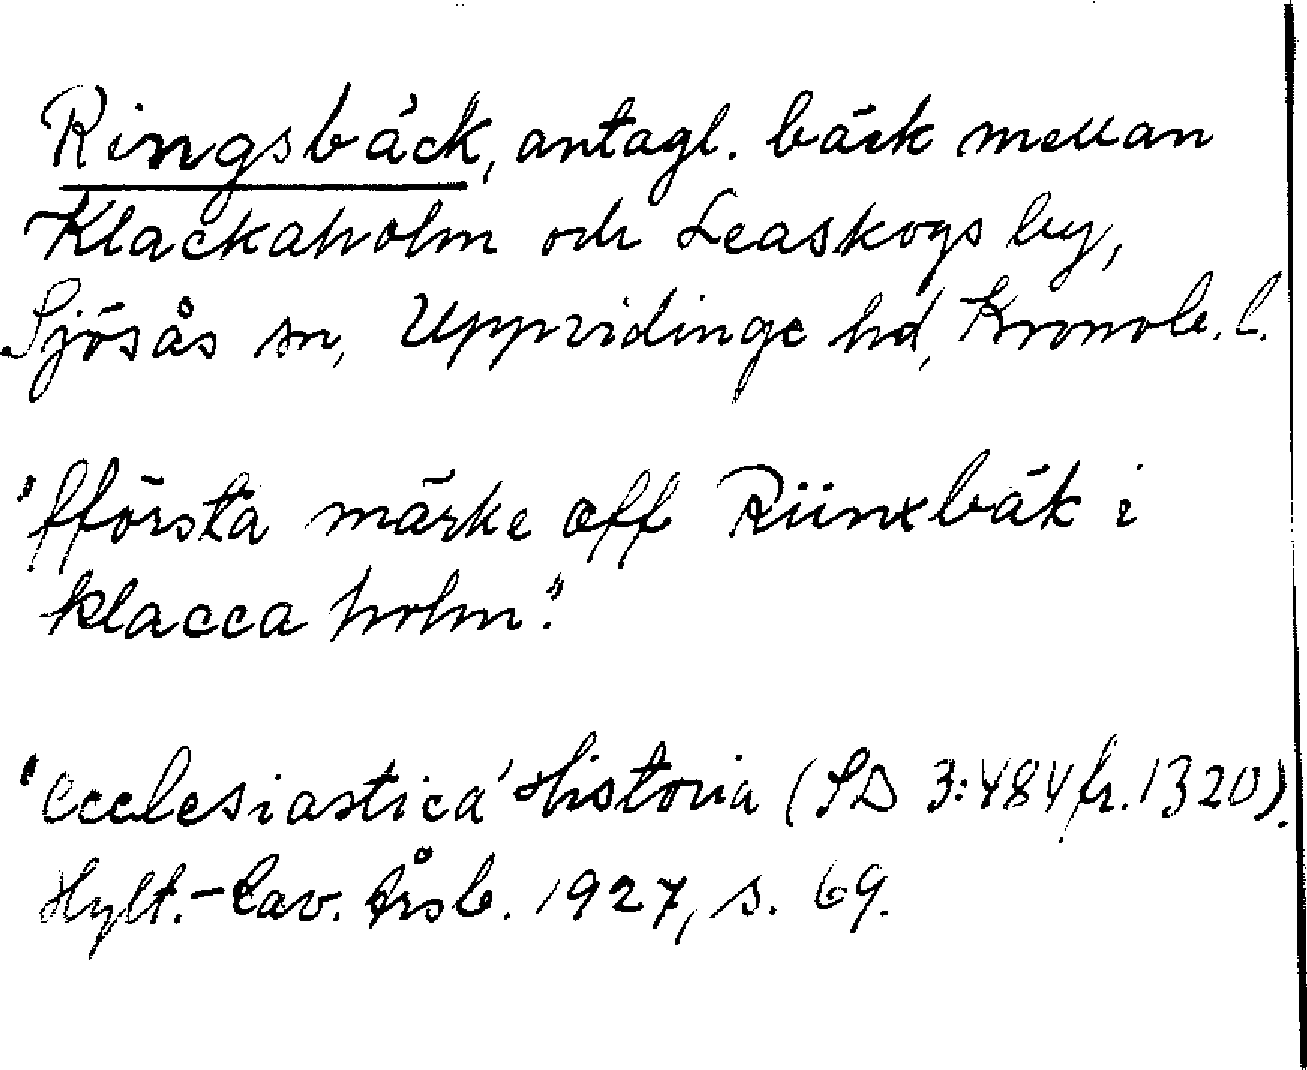 Ringsbäck, antagl. bäck mellan
Klackaholm och Leaskogs by,
Sjösås sn, Uppvidinge hd, Kronob. l.
"fförsta märke aff Riinxbäk i
klacca holm."
"Ecclesiastica" Historia (SD 3:484 fr. 1320).
Hylt.-Cav. årsb. 1927, s. 69.